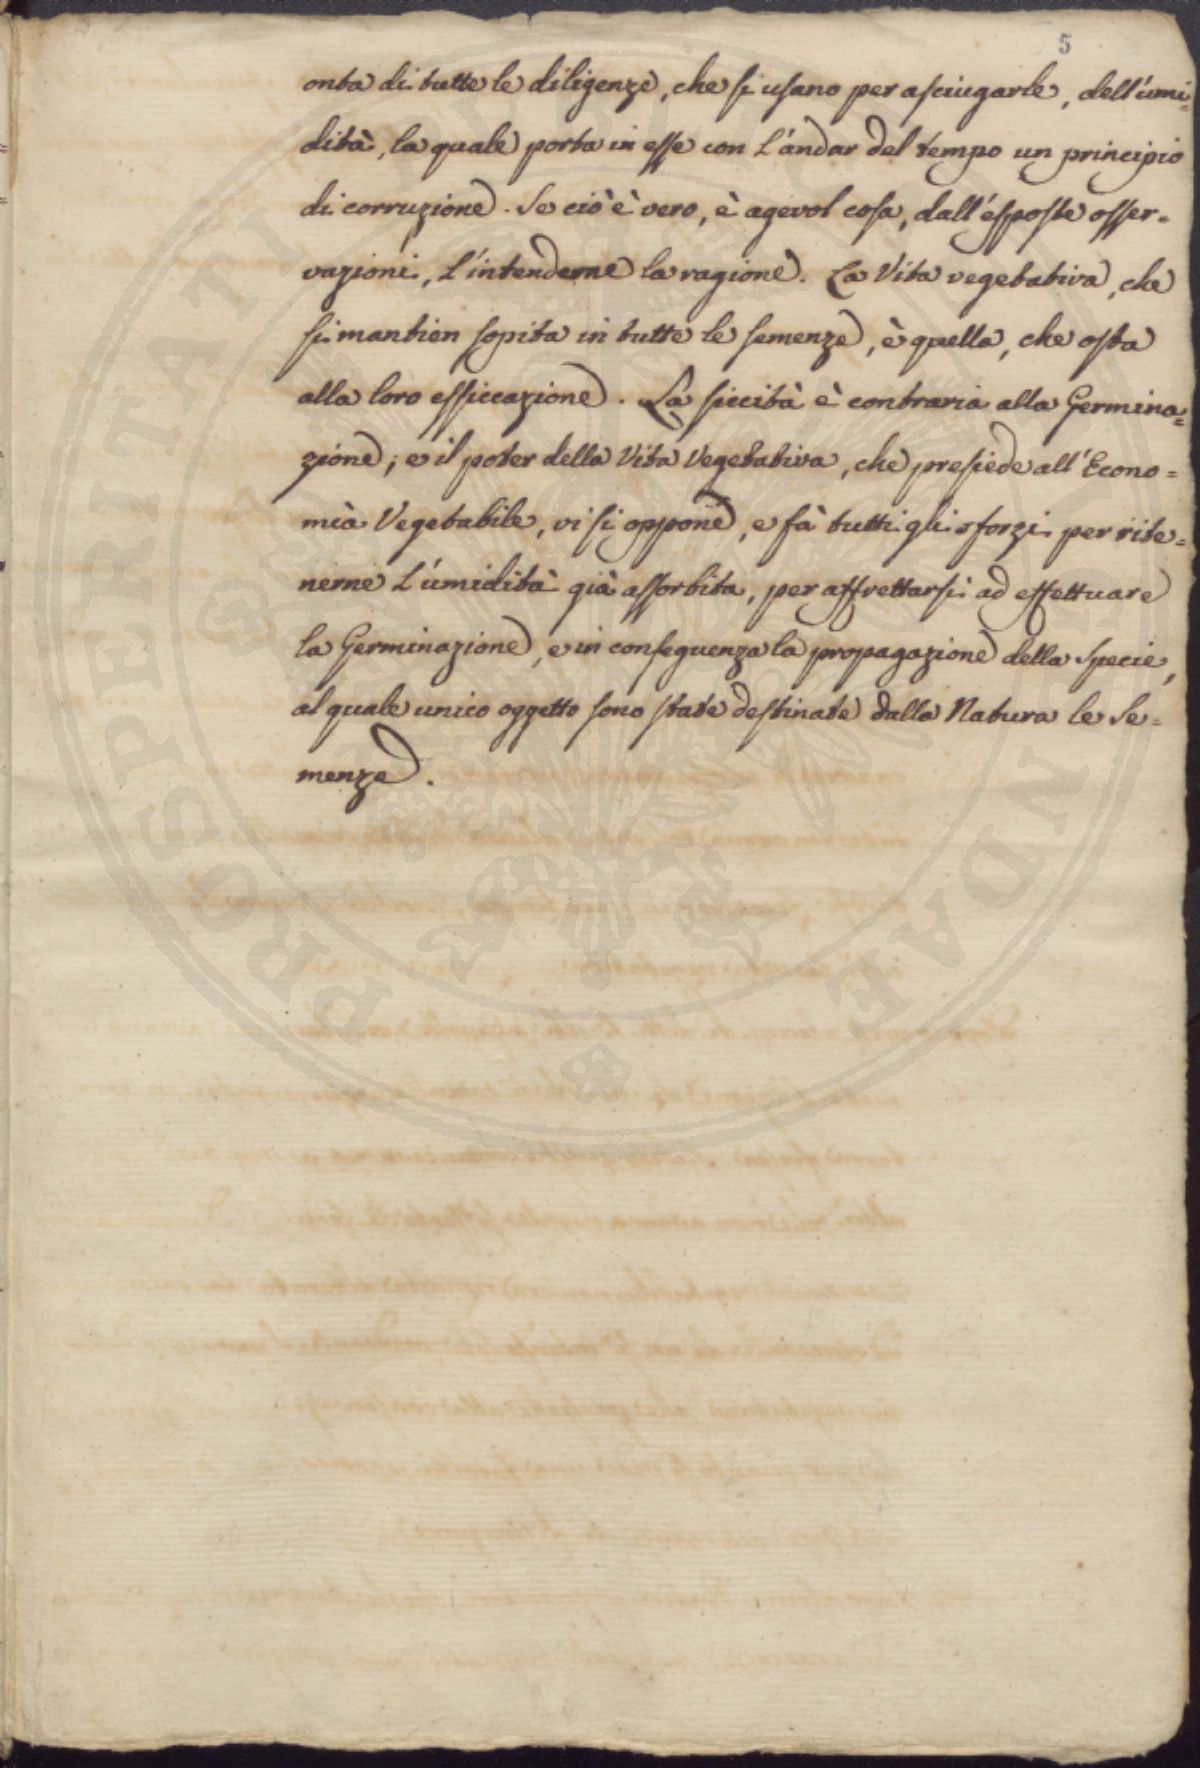 5
onta di tutte le diligenze, che si usano per asciugarle, dell'umi-
dità, la quale porta in esse con l'andar del tempo un principio
di corruzione. Se ciò è vero, è agevol cosa, dall'esposte osser-
vazioni, l'intenderne la ragione. La Vita vegetativa, che
si mantien sopita in tutte le semenze, è quella, che osta
alla loro essiccazione. La siccità è contraria alla Germina-
zione; e il poter della Vita Vegetativa, che presiede all'Econo-
mia Vegetabile, vi si oppone, e fà tutti gli sforzi per rite-
nerne l'umidità già assorbita, per affrettarsi ad effettuare
la Germinazione, e in conseguenza la propagazione della Specie,
al quale unico oggetto sono state destinate dalla Natura le Se-
menze.
PROSPERITATI
NDAE